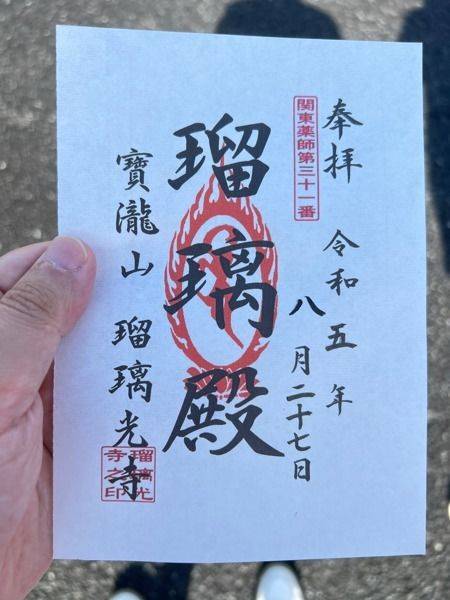 関東薬師第三十一番
奉拝 令和五年
八月二十七日
瑠璃殿
寶瀧山 瑠璃光寺
瑠璃光
寺之印